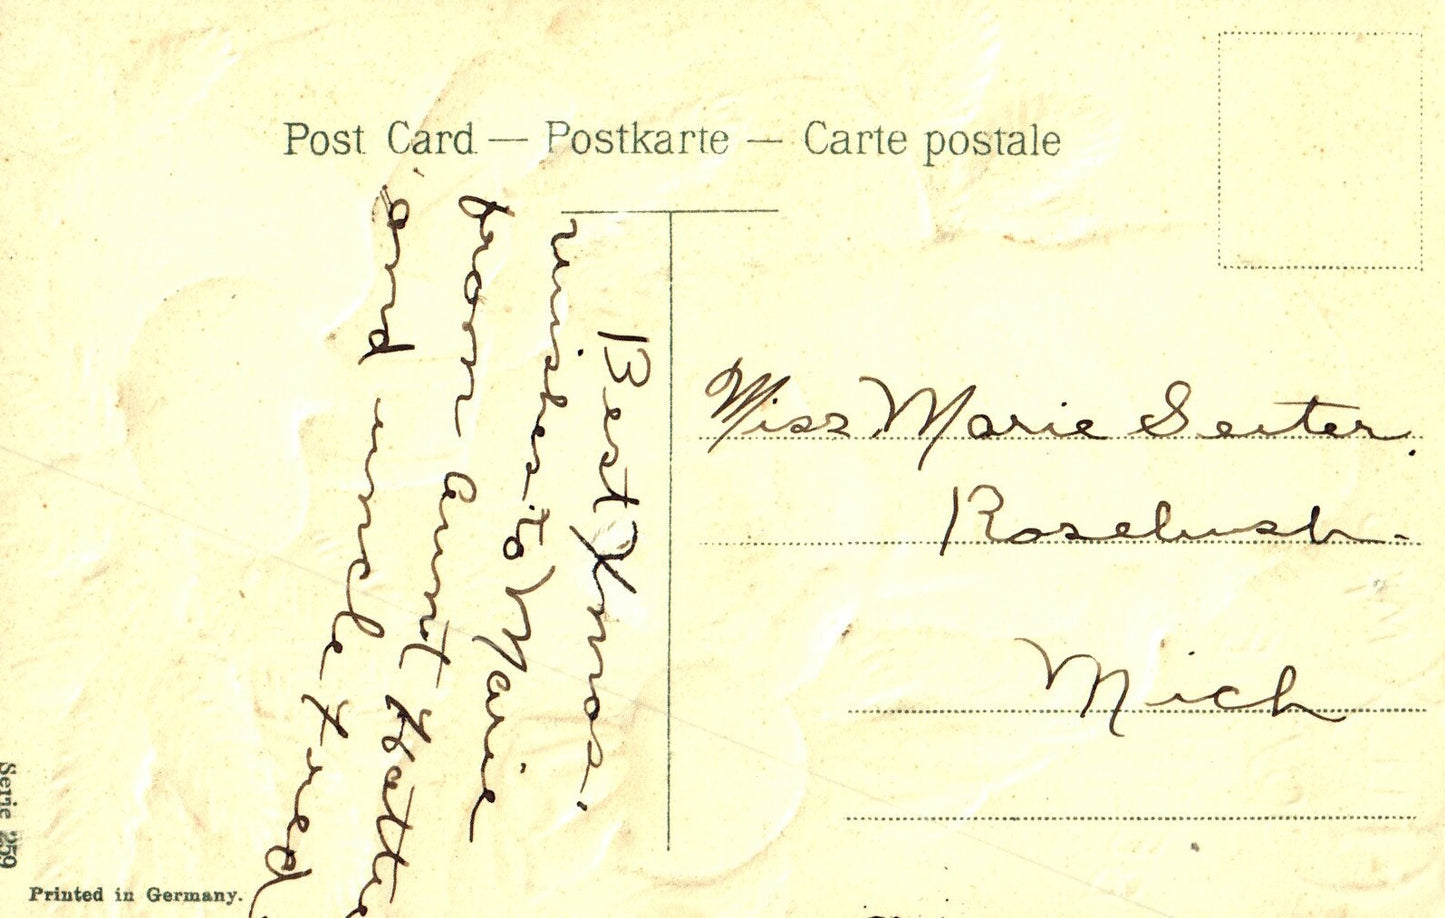 Post Card — Postkarte — Carte postale
Best Xmas.
wishes to Marie
from aunt Hattie
and uncle Fred
Miss Marie Seiter.
Rosebush.
Mich
Serie 259
Printed in Germany.